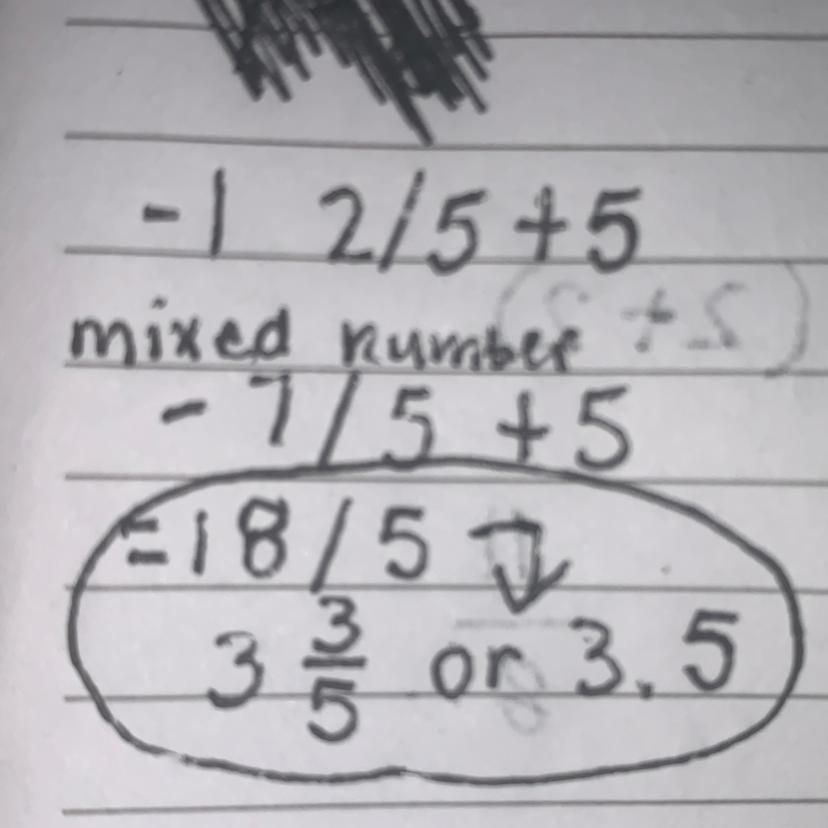 -1 2/5 + 5
mixed number
- 7/5 + 5
= 18/5
3 3/5 or 3.5